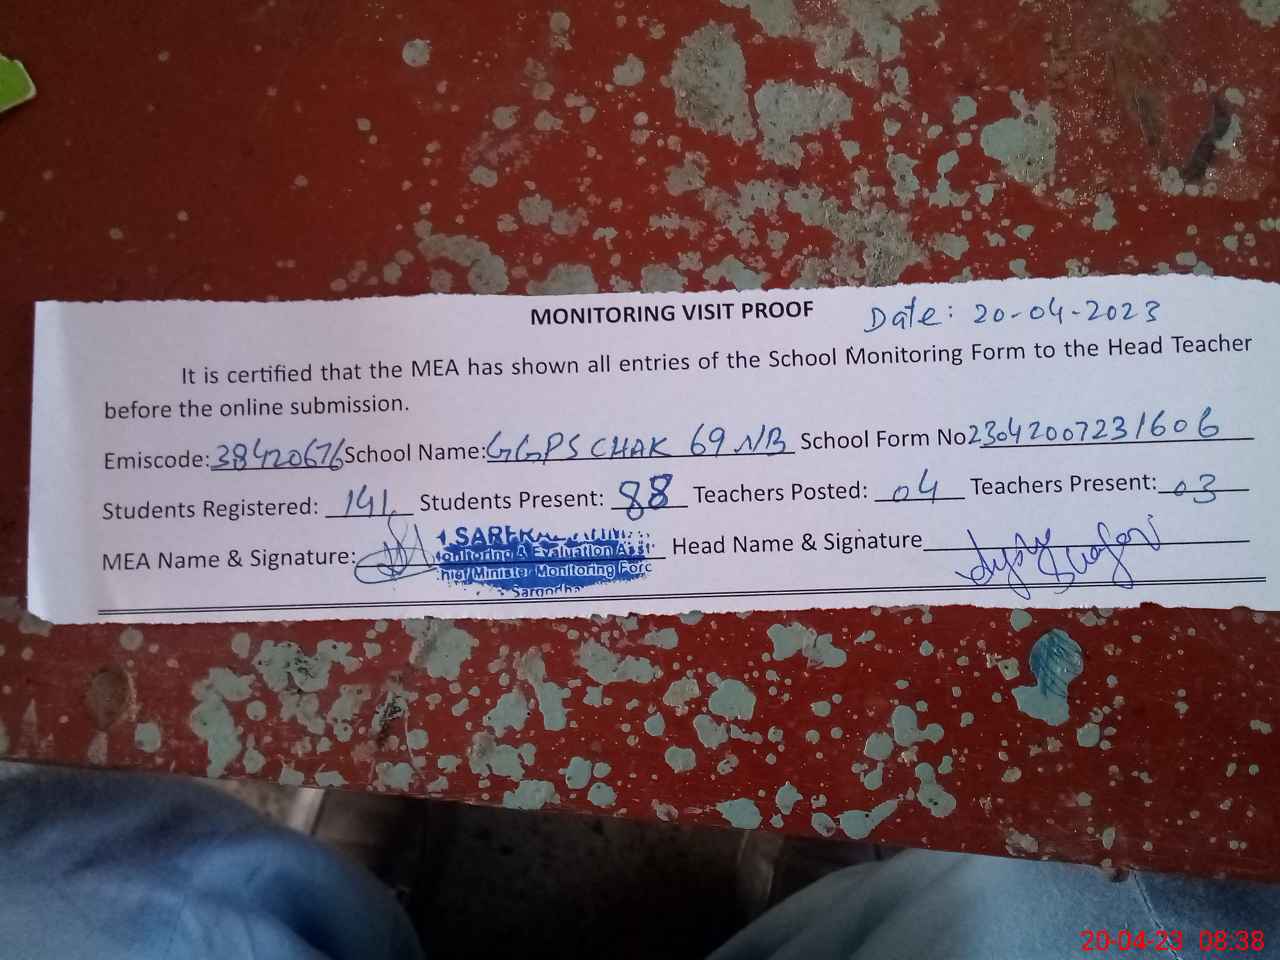 MONITORING VISIT PROOF Date: 20-04-2023
It is certified that the MEA has shown all entries of the School Monitoring Form to the Head Teacher
before the online submission.
Emiscode: 38420676 School Name: GGPS CHAK 69 NB School Form No 23042007231606
Students Registered: 141 Students Present: 88 Teachers Posted: 04 Teachers Present: 03
MEA Name & Signature: Head Name & Signature
onitoring & Evaluation Assi
hief Minister Monitoring Forc
Sargodha
20-04-23 08:38